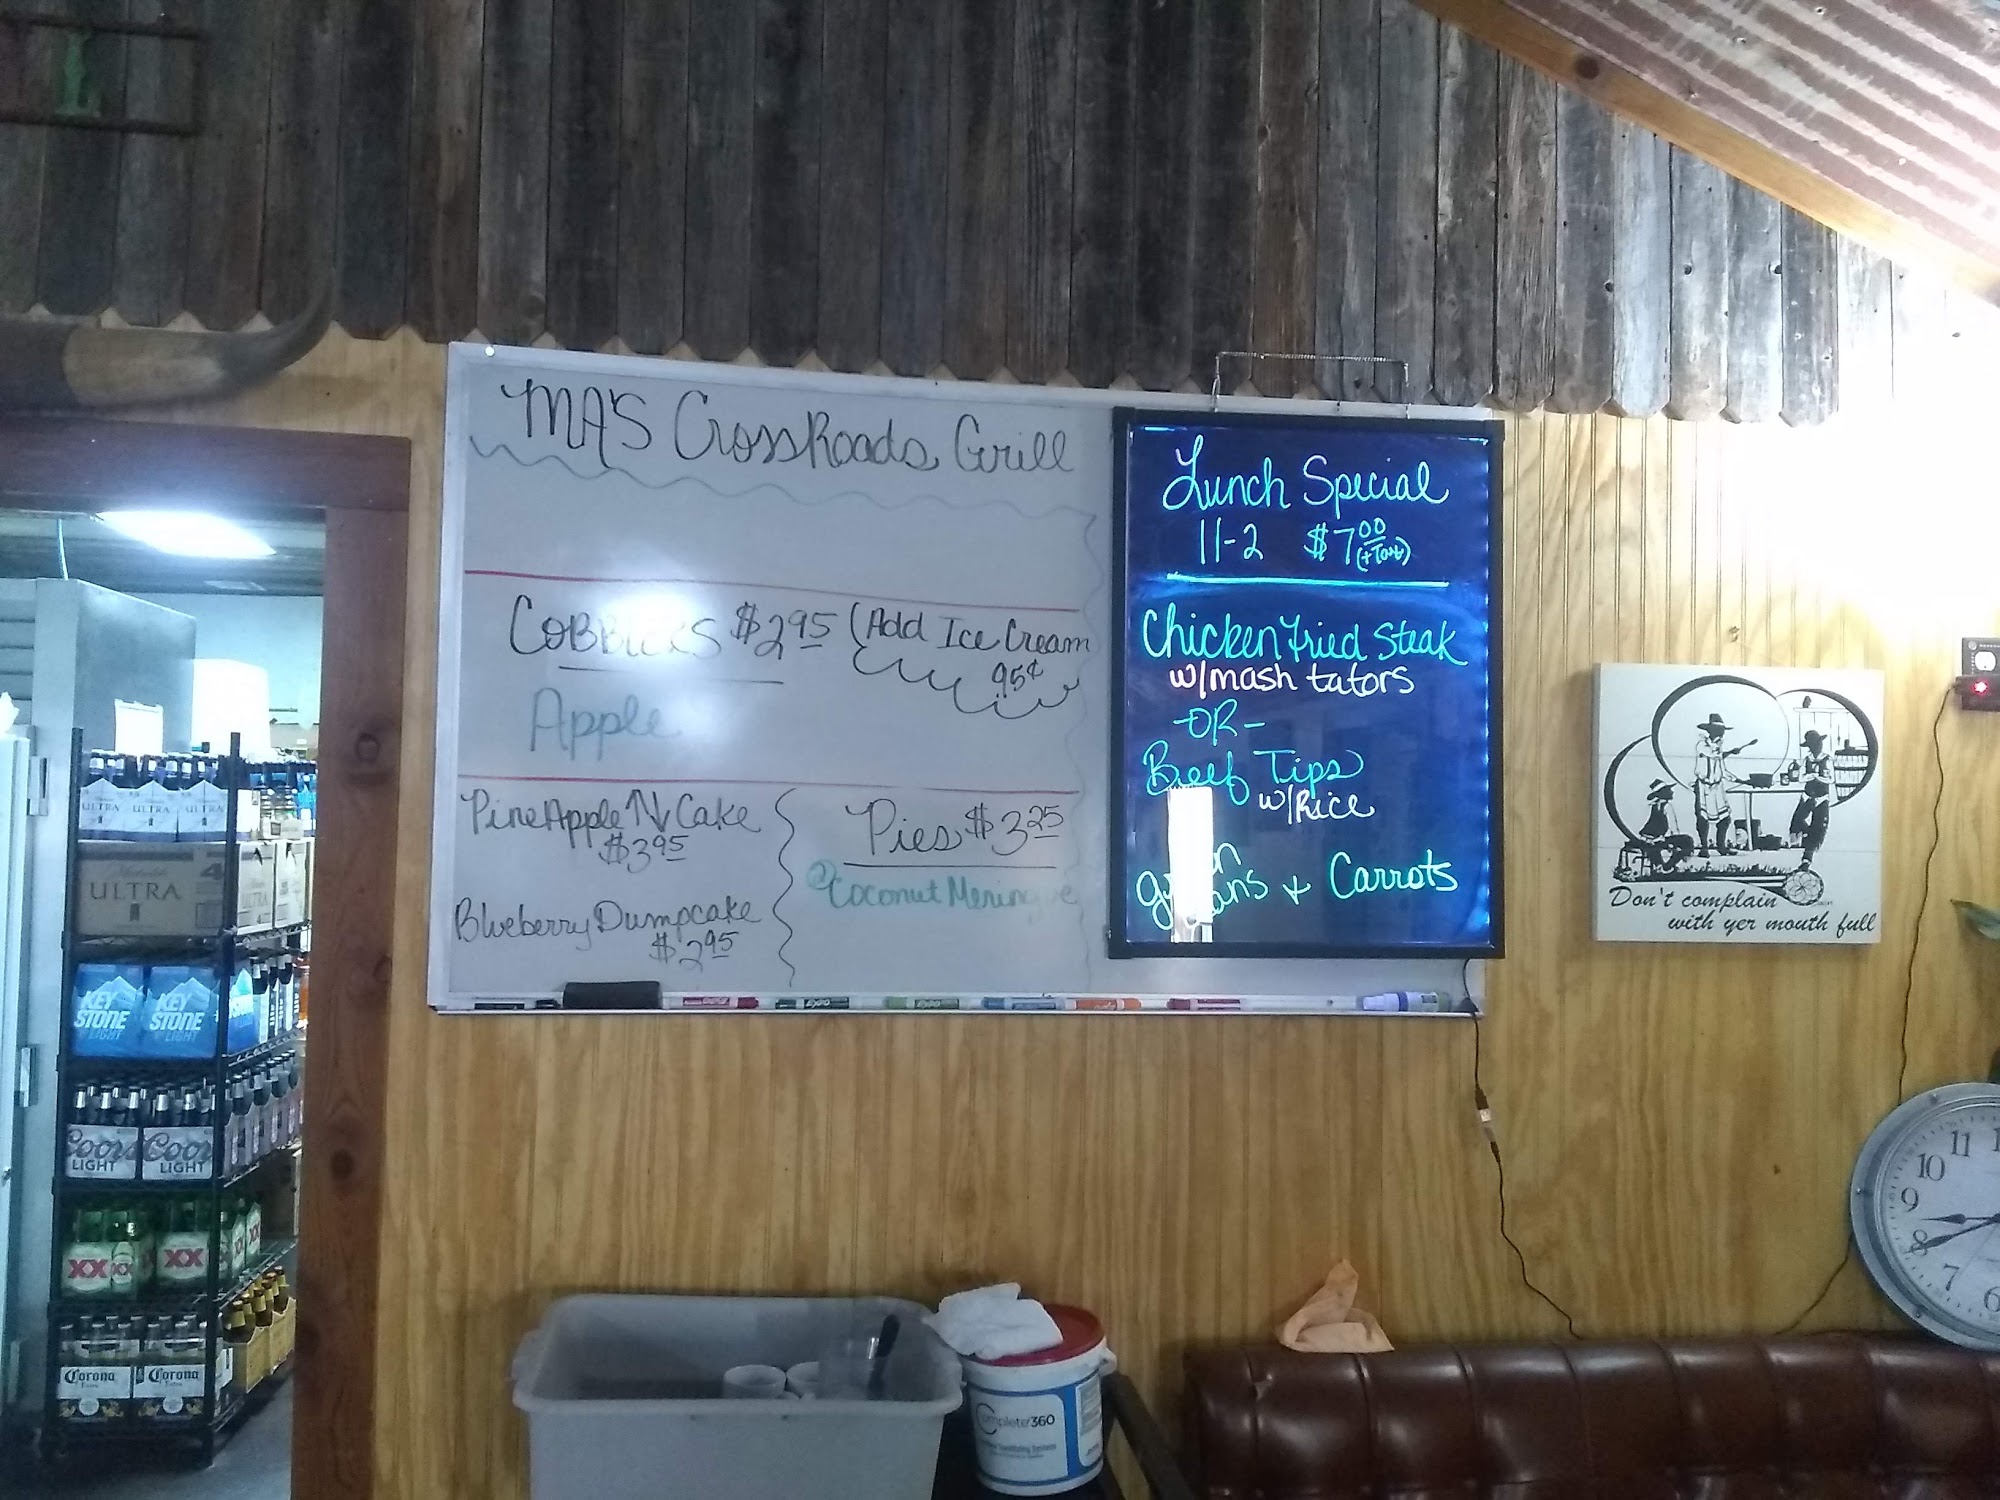 MA'S CrossRoads Grill
Cobblers $2.95 (Add Ice Cream
95¢
Apple
PineApple ↑↓ Cake
$3.95
Blueberry Dumpcake
$2.95
Pies $3.25
Coconut Meringue
Lunch Special
11-2 $7.00
(+Tax)
Chicken Fried Steak
w/mash tators
-OR-
Beef Tips
w/Rice
green
beans + Carrots
Don't complain
with yer mouth full
ULTRA ULTRA
ULTRA
ULTRA
KEY STONE LIGHT
KEY STONE LIGHT
Coors LIGHT
Coors LIGHT
XX XX XX
Corona Extra
Corona Extra
Complete360
EXPO
11
10
9
8
7
6